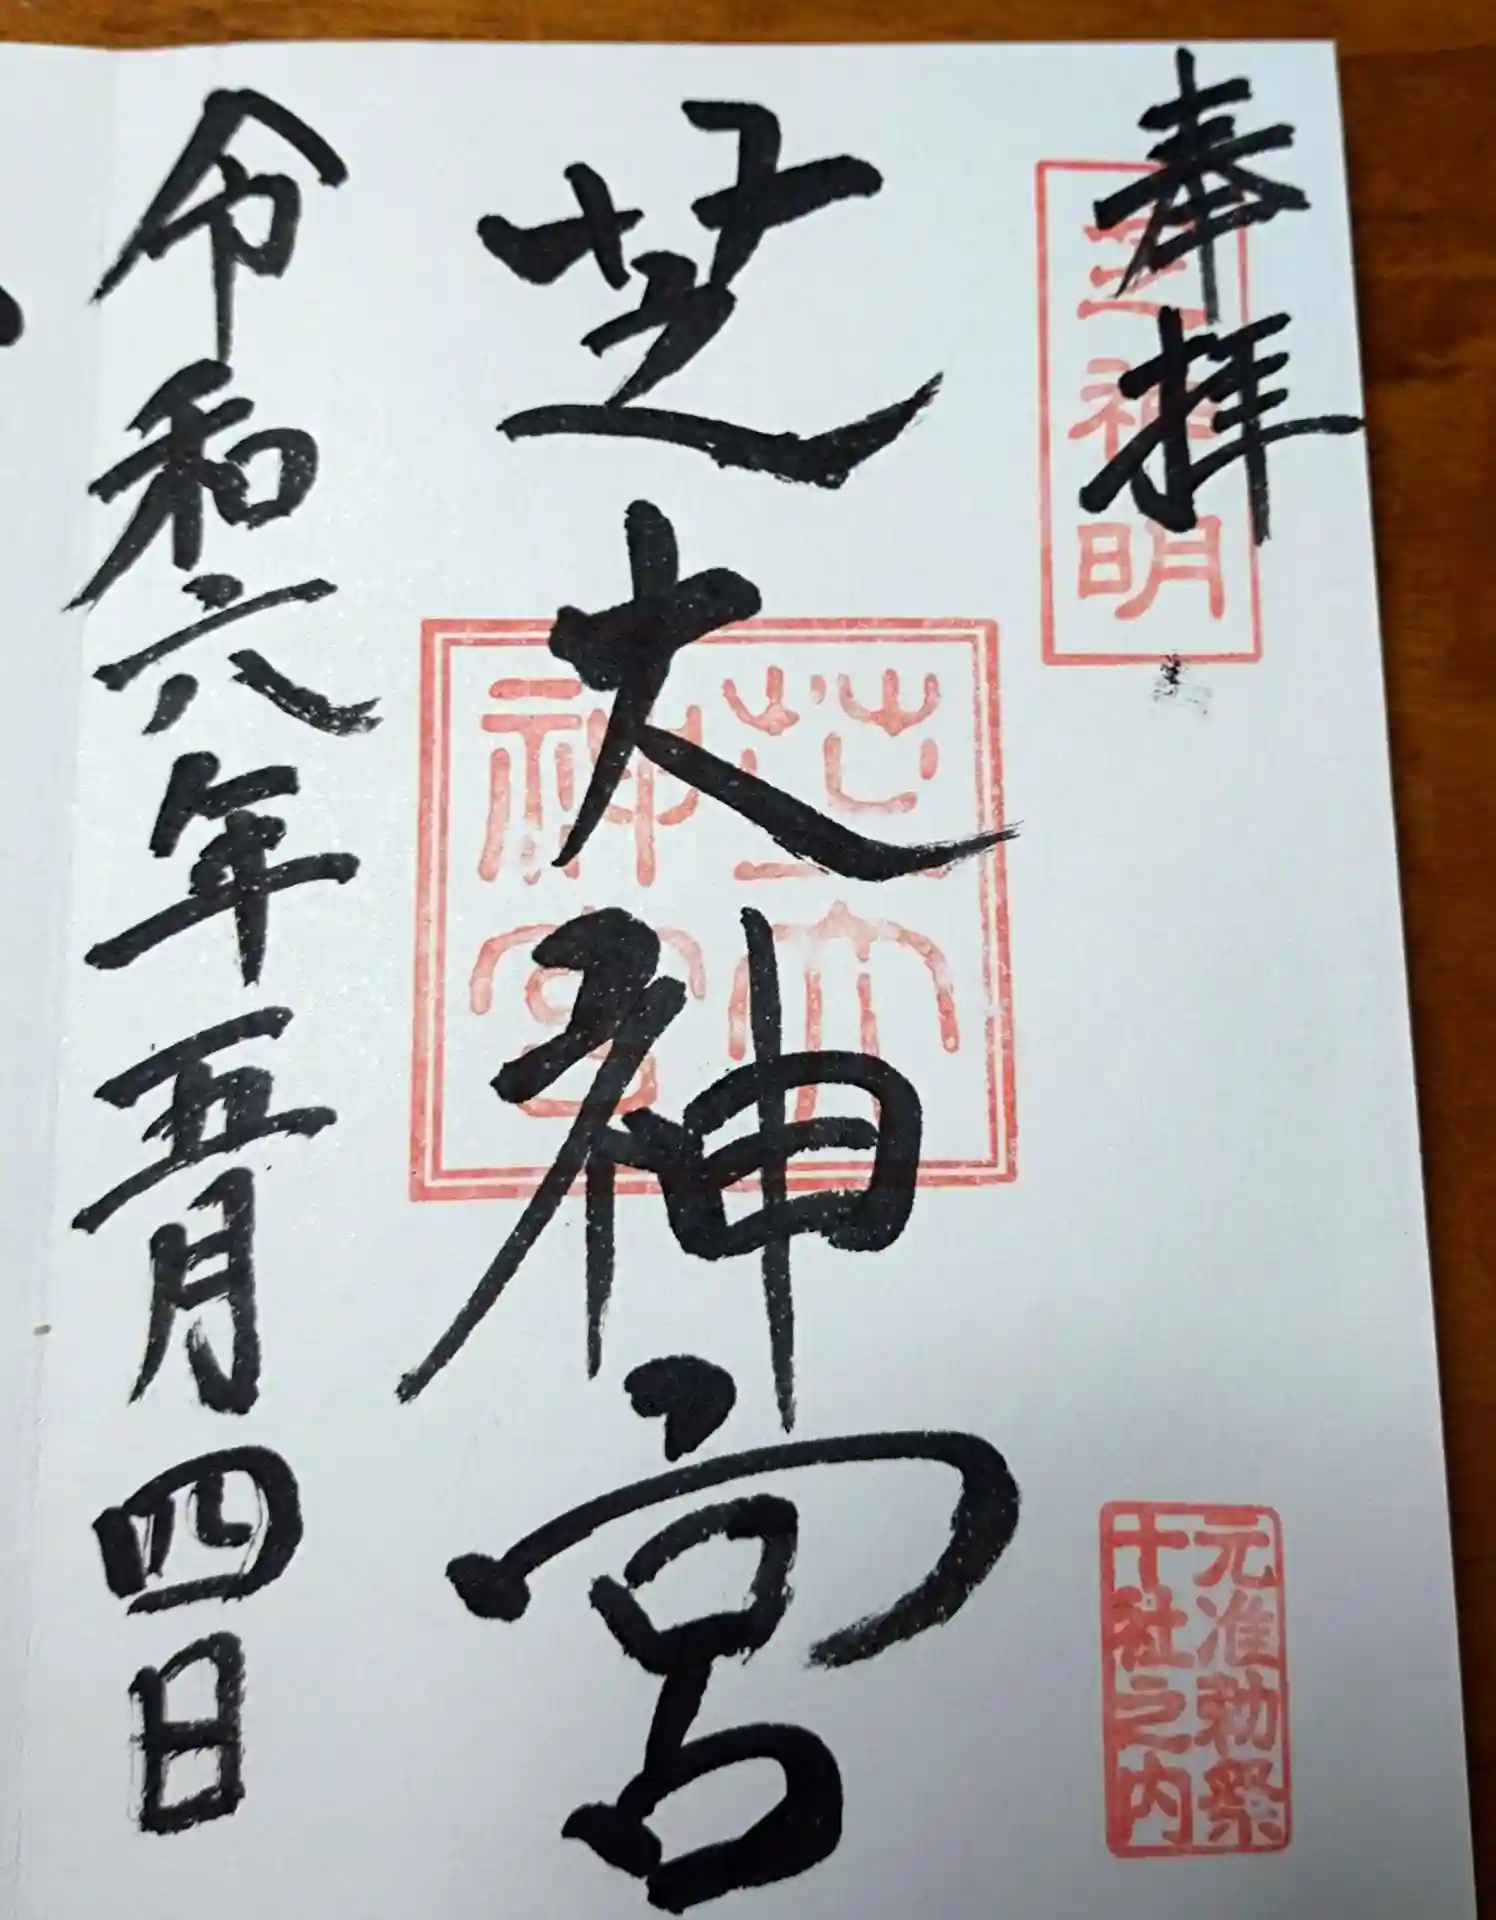 奉拝
芝神明
元准勅祭
十社之内
芝大神宮
芝大
神宮
令和六年五月四日